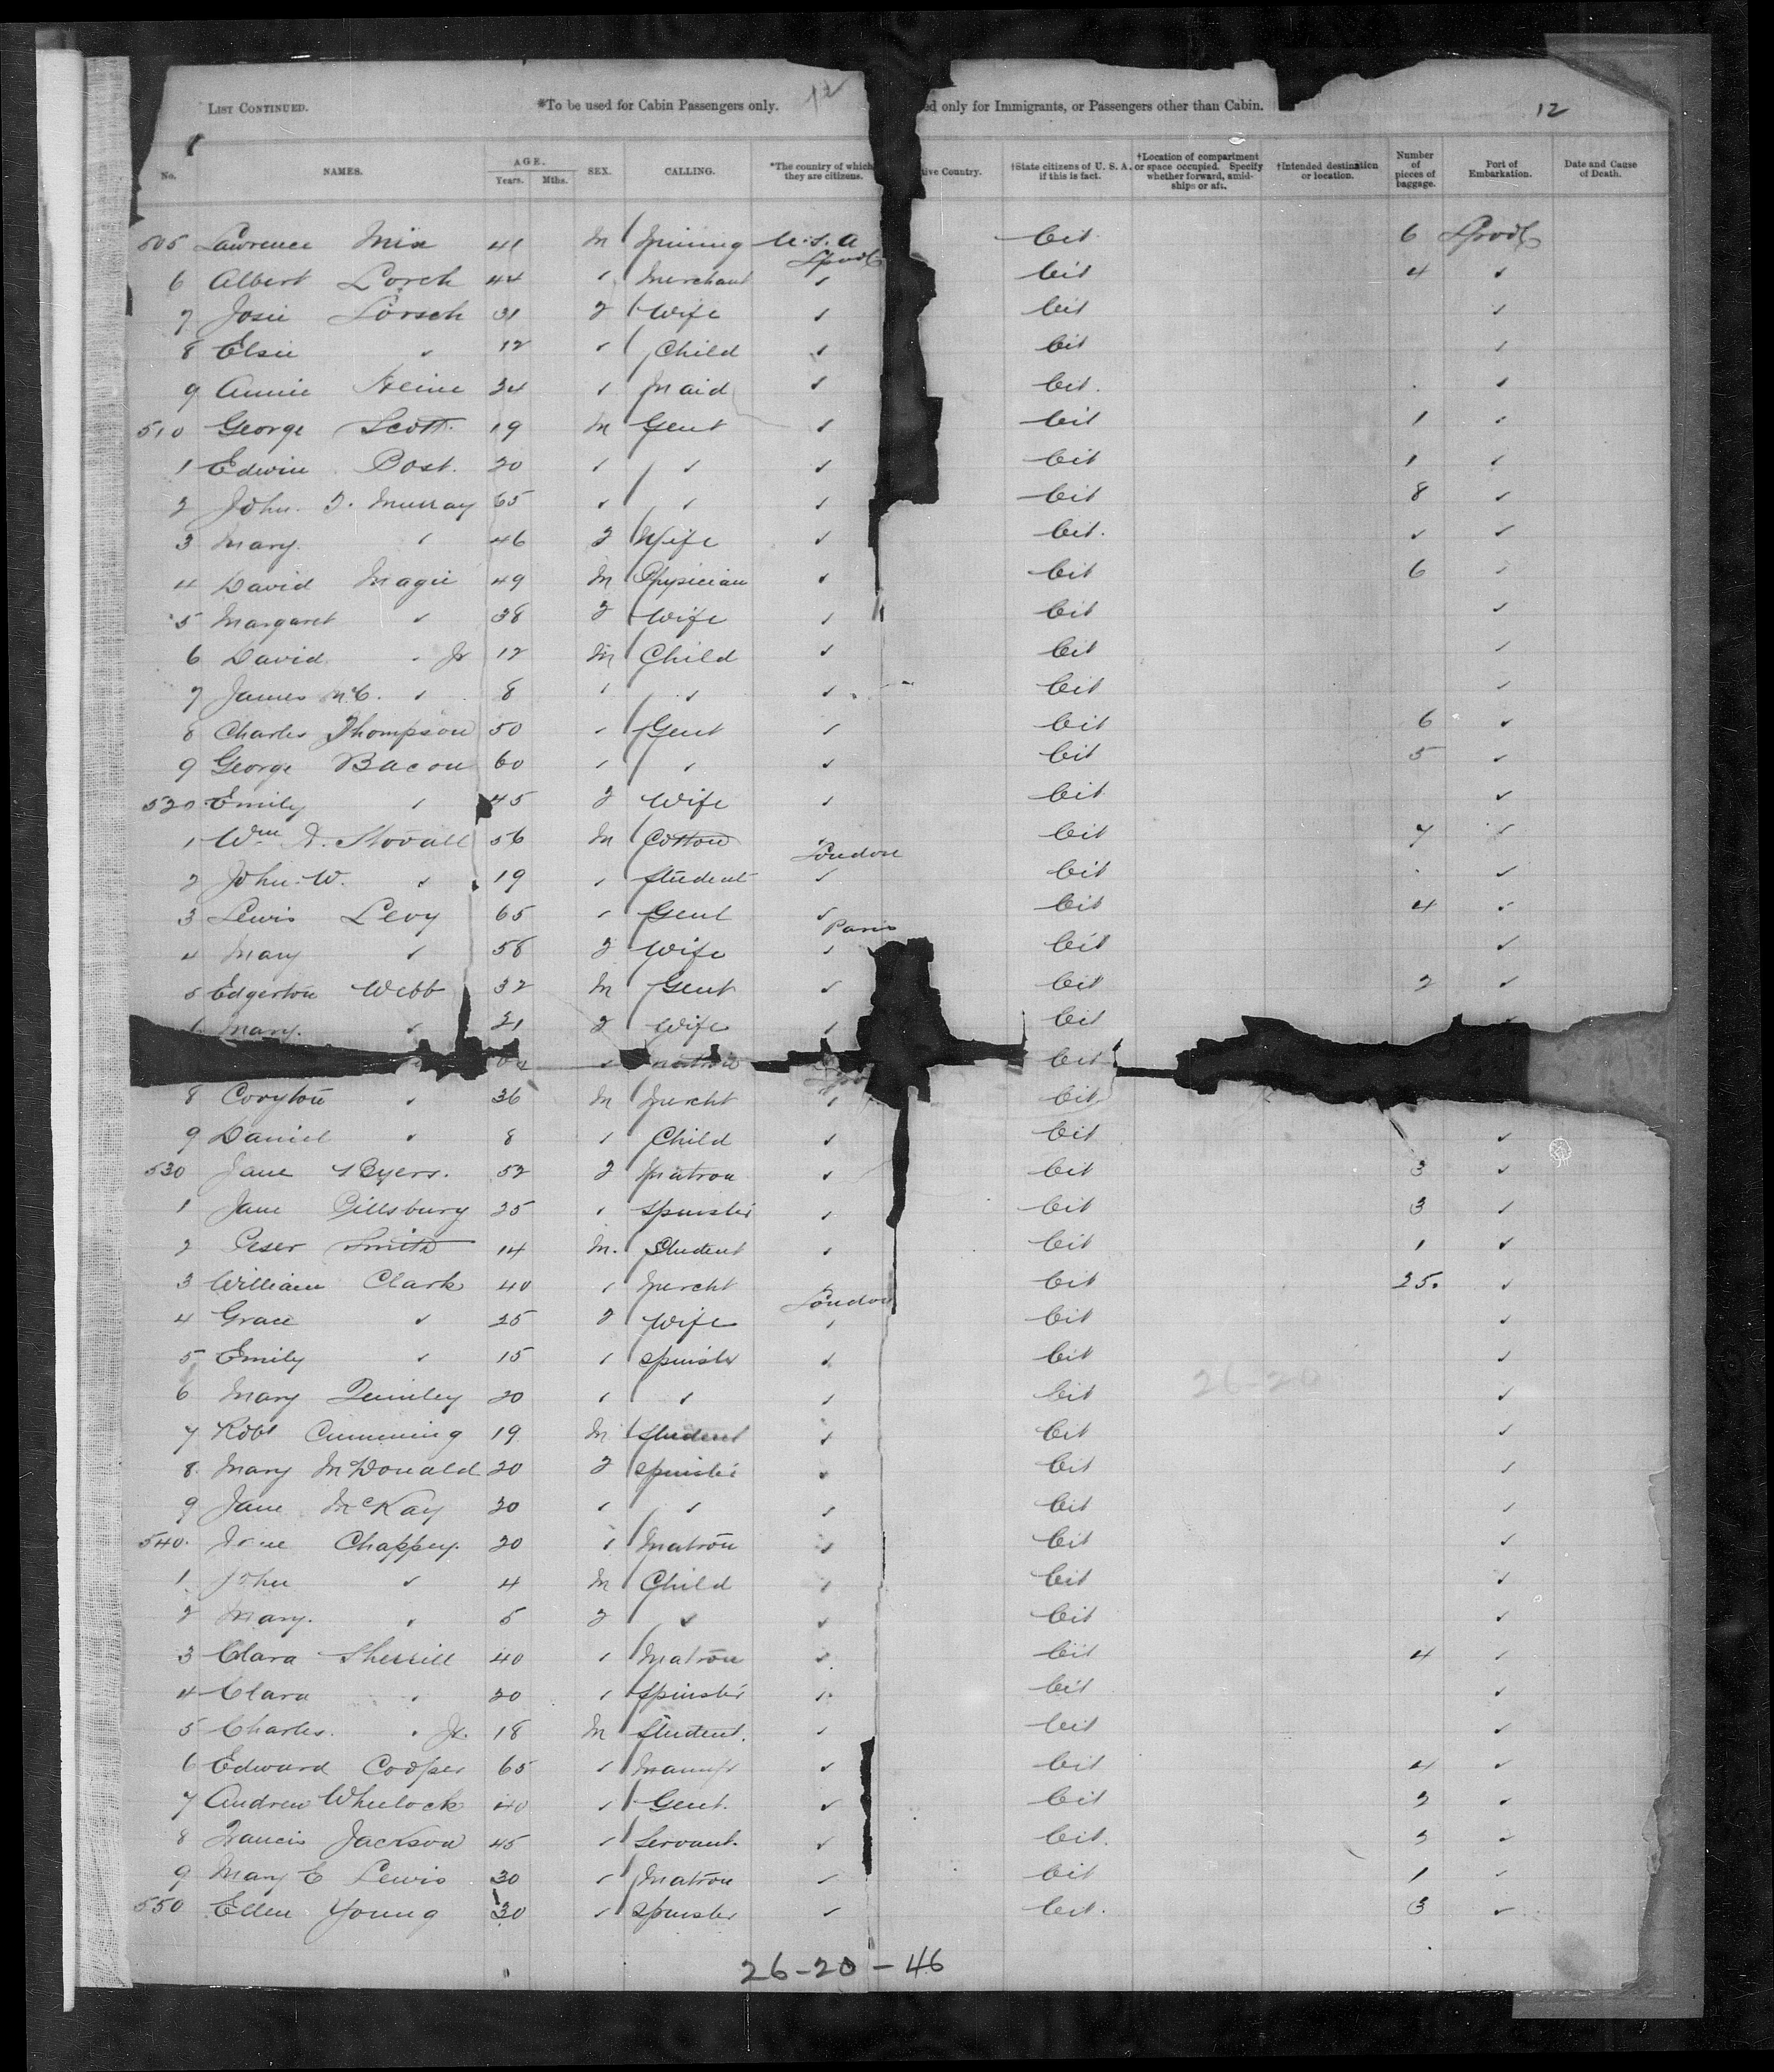 LIST CONTINUED. *To be used for Cabin Passengers only. 12 ed only for Immigrants, or Passengers other than Cabin. 12
No. NAMES. AGE. Years. Mths. SEX. CALLING. *The country of which they are citizens. tive Country. †State citizens of U. S. A. if this is fact. †Location of compartment or space occupied. Specify whether forward, amidships or aft. †Intended destination or location. Number of pieces of baggage. Port of Embarkation. Date and Cause of Death.
505 Lawrence Mix 41 M Mining U.S.A Cit 6 Lpool
Lpool
6 Albert Lorch 44 " Merchant " Cit 4 "
7 Josie Lorsch 31 F Wife " Cit "
8 Elsie " 12 " Child " Cit "
9 Annie Heine 34 " Maid " Cit. "
510 George Scott. 19 M Gent " Cit 1 "
1 Edwin Post. 20 " " " Cit 1 "
2 John. F. Murray 65 " " " Cit 8 "
3 Mary. " 46 F Wife " Cit. " "
4 David Magie 49 M Physician " Cit 6 "
5 Margaret " 38 F Wife " Cit "
6 David " Jr 12 M Child " Cit "
7 James McC. " 8 " " " Cit "
8 Charles Thompson 50 " Gent " Cit 6 "
9 George Bacon 60 " " " Cit 5 "
520 Emily " 45 F Wife " Cit "
1 Wm A. Stovall 56 M Cotton " Cit 7 "
London
2 John. W. " 19 " Student " Cit "
3 Lewis Levy 65 " Gent " Cit 4 "
Paris
4 Mary " 58 F Wife " Cit "
5 Edgerton Webb 32 M Gent " Cit 2 "
6 Mary. " 21 F Wife " Cit "
" " Matron Cit
8 Coryton " 36 M Mercht " Cit
9 Daniel " 8 " Child " Cit "
530 Jane Byers. 52 F Matron " Cit 3 "
1 Jane Pillsbury 25 " Spinster " Cit 3 "
2 Peser Smith 14 M. Student " Cit 1 "
3 William Clark 40 " Mercht " Cit 25. "
London
4 Grace " 25 F Wife " Cit "
5 Emily " 15 " Spinster " Cit "
6 Mary Quinley 20 " " " Cit "
26-20
7 Robt Cumming 19 M Student " Cit "
8. Mary McDonald 20 F Spinster " Cit "
9 Jane McKay 20 " " " Cit "
540. Jane Chappey. 20 " Matron " Cit "
1 John " 4 M Child " Cit "
2 Mary. " 5 F " " Cit "
3 Clara Sherrill 40 " Matron " Cit 4 "
4 Clara " 20 " Spinster " Cit "
5 Charles. " Jr. 18 M Student. " Cit "
6 Edward Cooper 65 " Manuft " Cit 4 "
7 Andrew Wheelock 40 " Gent. " Cit 2 "
8 Francis Jackson 45 " Servant. " Cit. 2 "
9 Mary E Lewis 30 " Matron " Cit 1 "
550 Ellen Young 30 " Spinster " Cit. 3 "
26-20-46